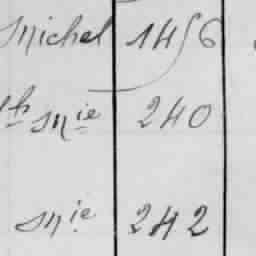 Michel 1456
Mie 240
Mie 242